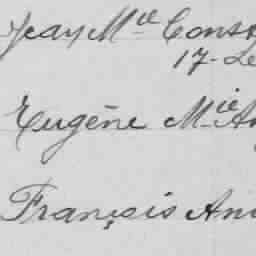 Jean Mie Const
17-De
Eugène Mie An
François Ani